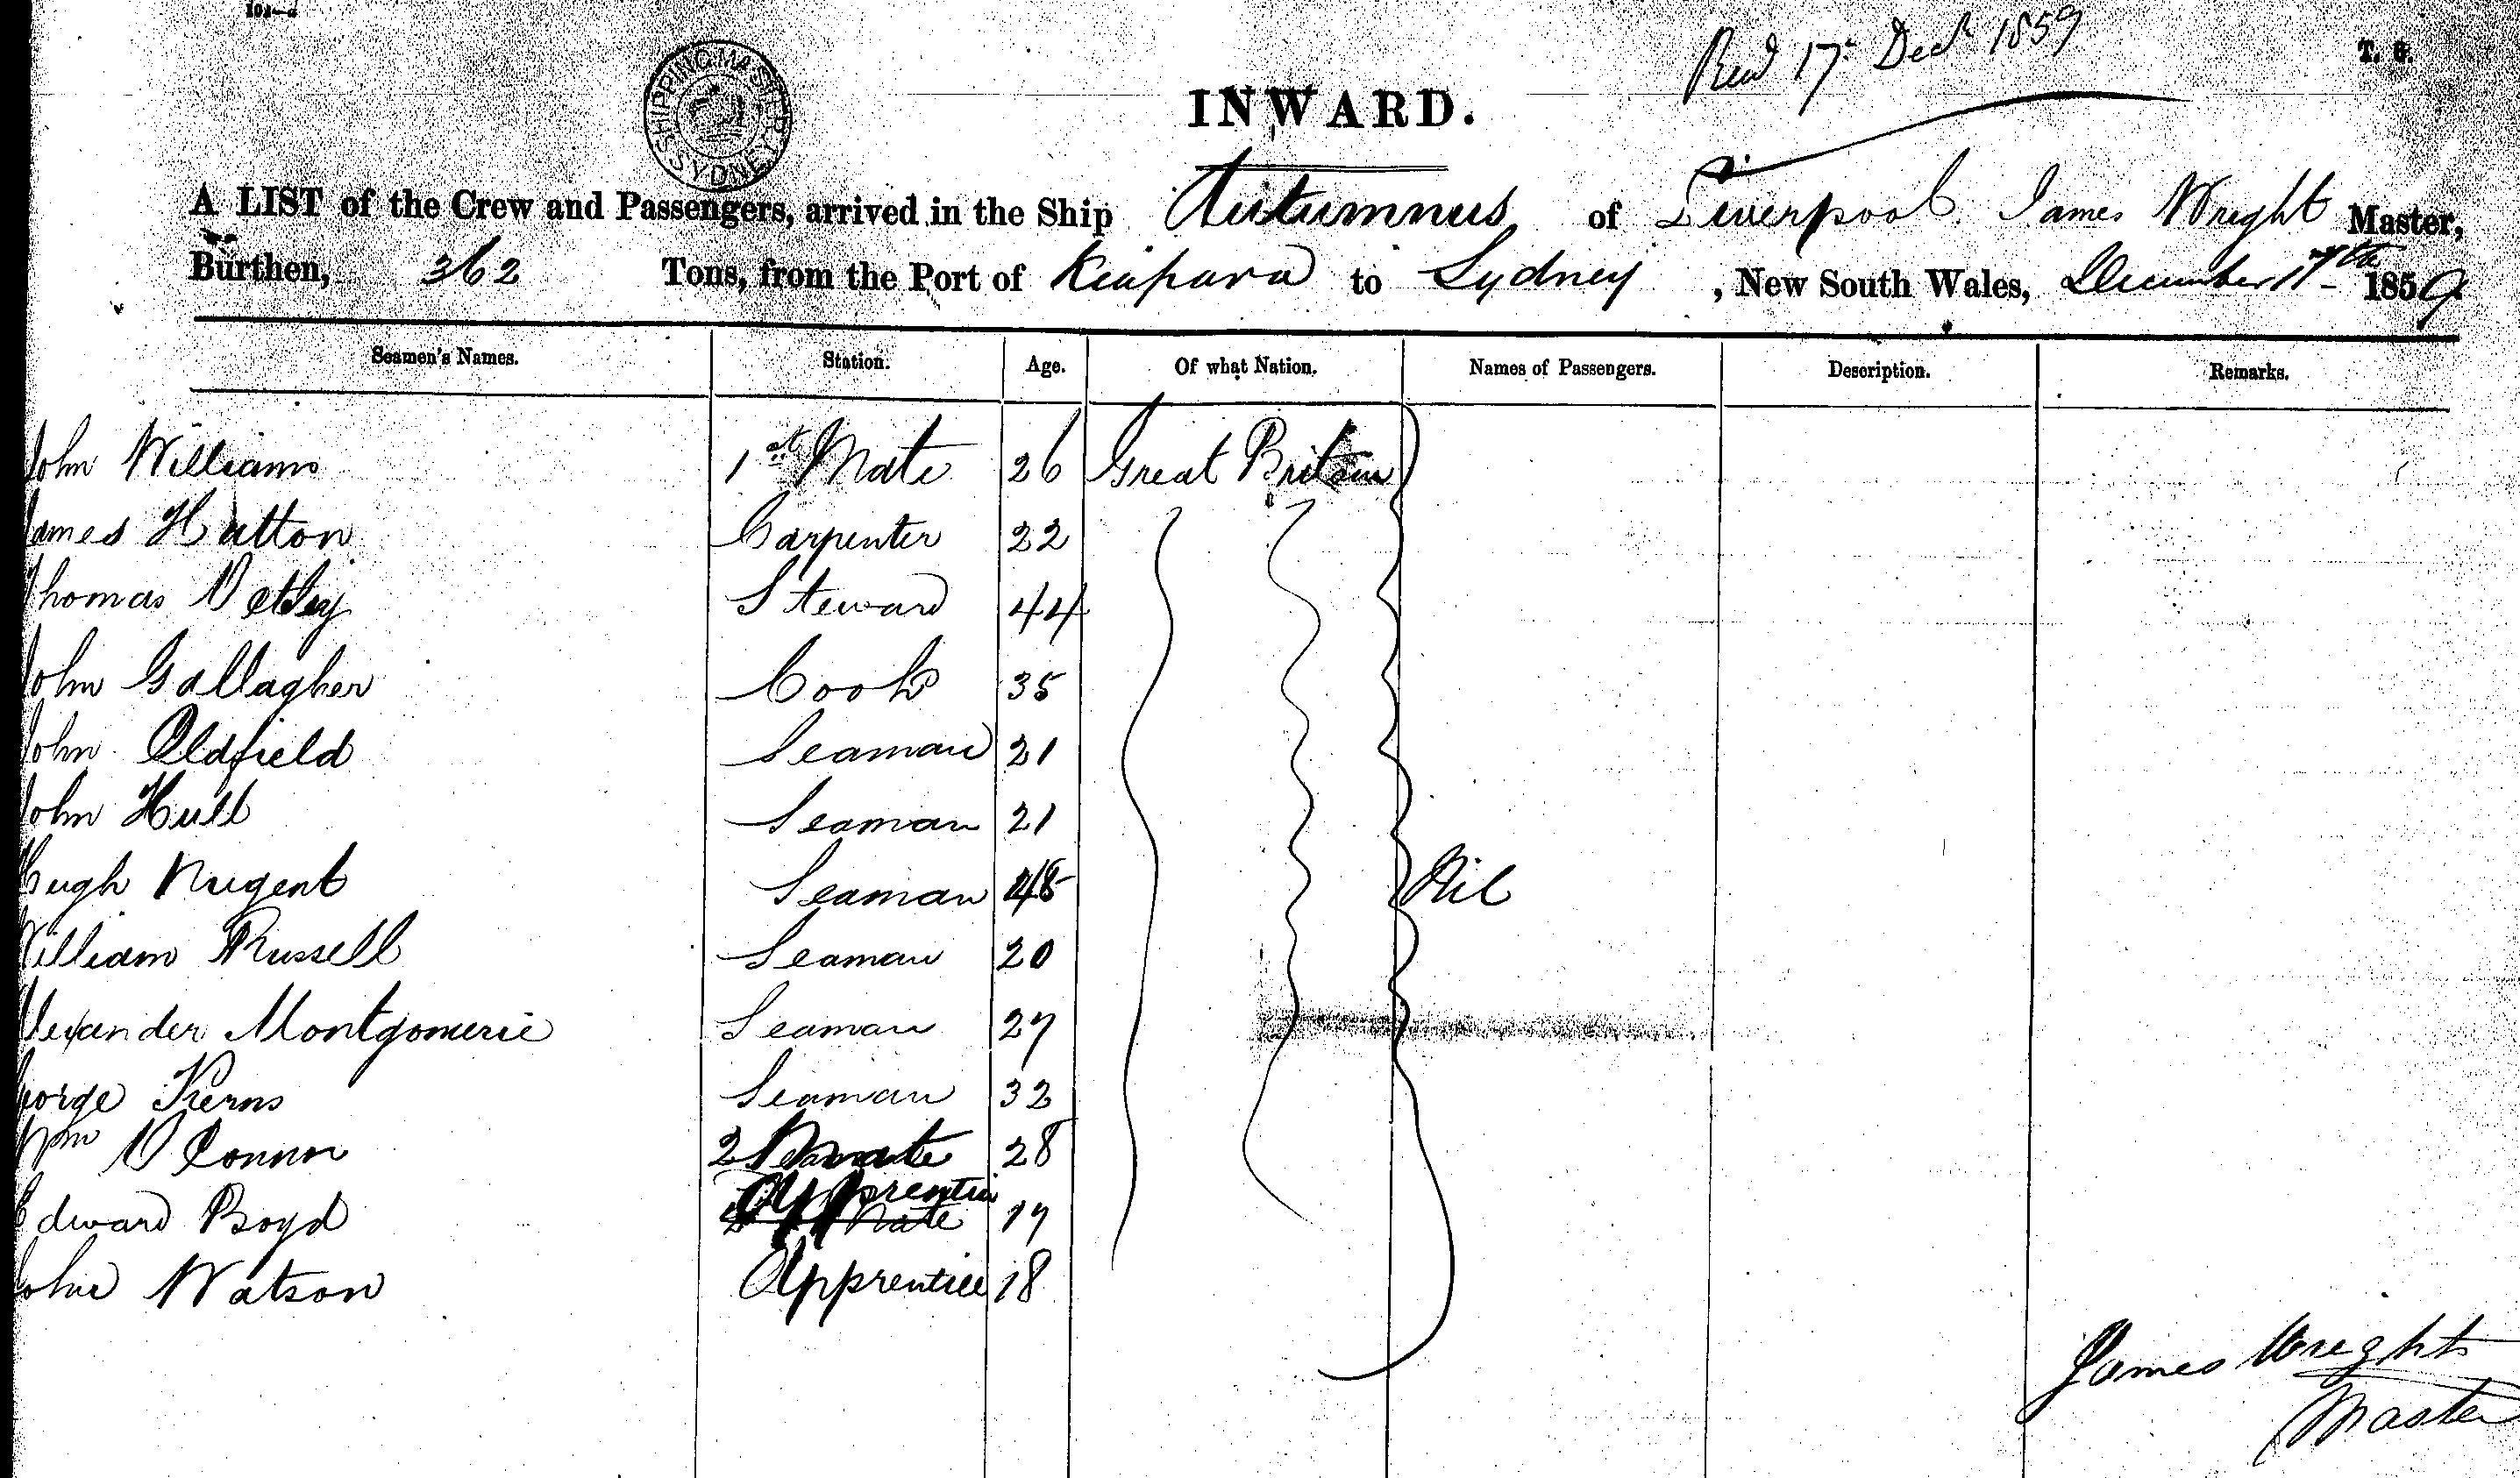 Recd 17 Decr 1859
T. G.
SHIPPING MASTER SYDNEY
INWARD.
A LIST of the Crew and Passengers, arrived in the Ship Autumnus of Liverpool James Wright Master,
Burthen, 362 Tons, from the Port of Kaipara to Sydney , New South Wales, December 17th 1859
Seamen's Names. Station. Age. Of what Nation. Names of Passengers. Description. Remarks.
John Williams 1st Mate 26 Great Britain
James Hatton Carpenter 22
Thomas Steward 44
John Gallagher Cook 35
John Oldfield Seaman 21
John Hull Seaman 21
Hugh Nugent Seaman 48 Nil
William Russell Seaman 20
Alexander Montgomerie Seaman 27
George Kerns Seaman 32
Wm O Connor 2 mate 28
Edward Boyd Apprentice 17
John Watson Apprentice 18
James Wright
Master